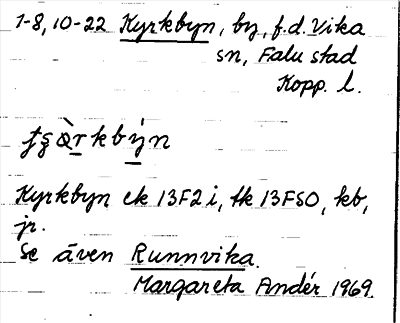 1-8, 10-22 Kyrkbyn, by, f.d. Vika
sn, Falu stad
Kopp. l.
Kyrkbyn ek 13F2i, tk 13FSO, kb,
jr.
Se även Runnvika.
Margareta Andér 1969.